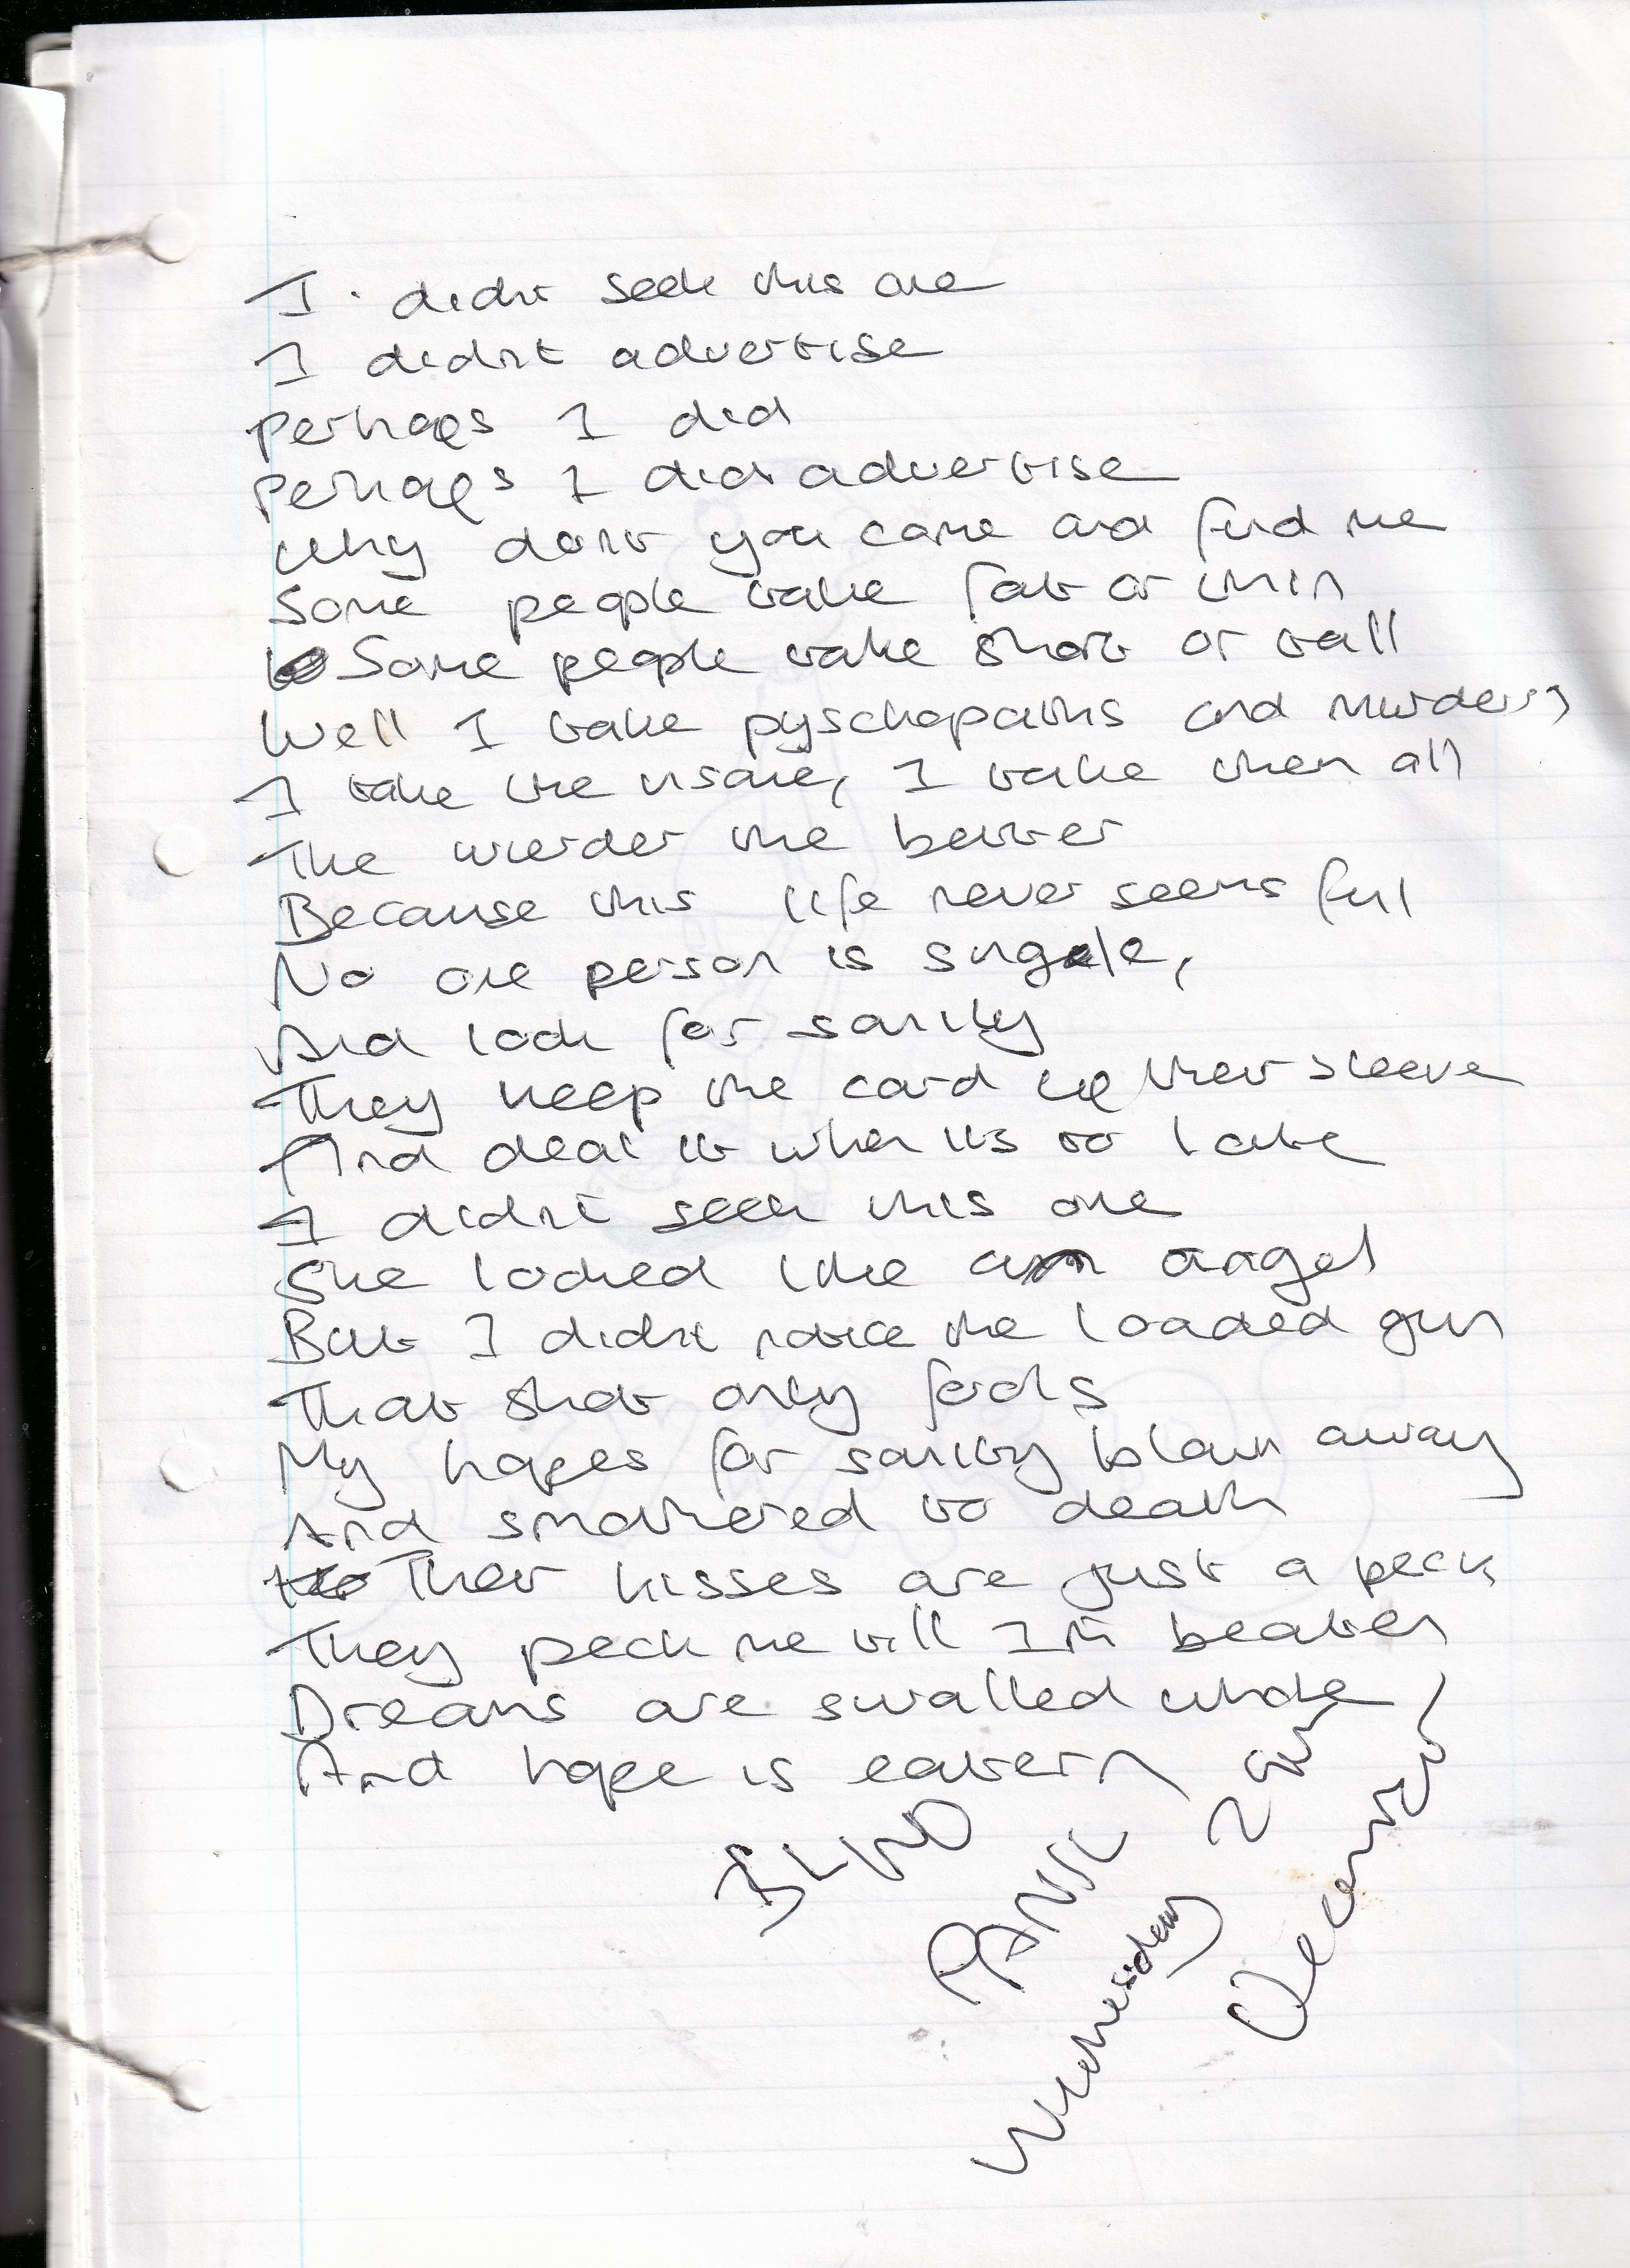 I didnt seek this one
I didnt advertise
perhaps I did
perhaps I did advertise
Why dont you come and find me
Some people take fat or thin
Some people take short or tall
Well I take pyschopaths and murders
I take the insane, I take them all
The wierder the better
Because this life never seems full
No one person is single,
And look for sanity
They keep the card up their sleeve
And deal it when its to late
I didnt seek this one
She looked like an angel
But I didnt notice the loaded gun
That shot only fools
My hopes for sanity blown away
And smothered to death
Their kisses are just a peck
They peck me till Im beaten
Dreams are swalled whole
And hope is eatern
BLIND
PANIC
Wednesday 2nd
December